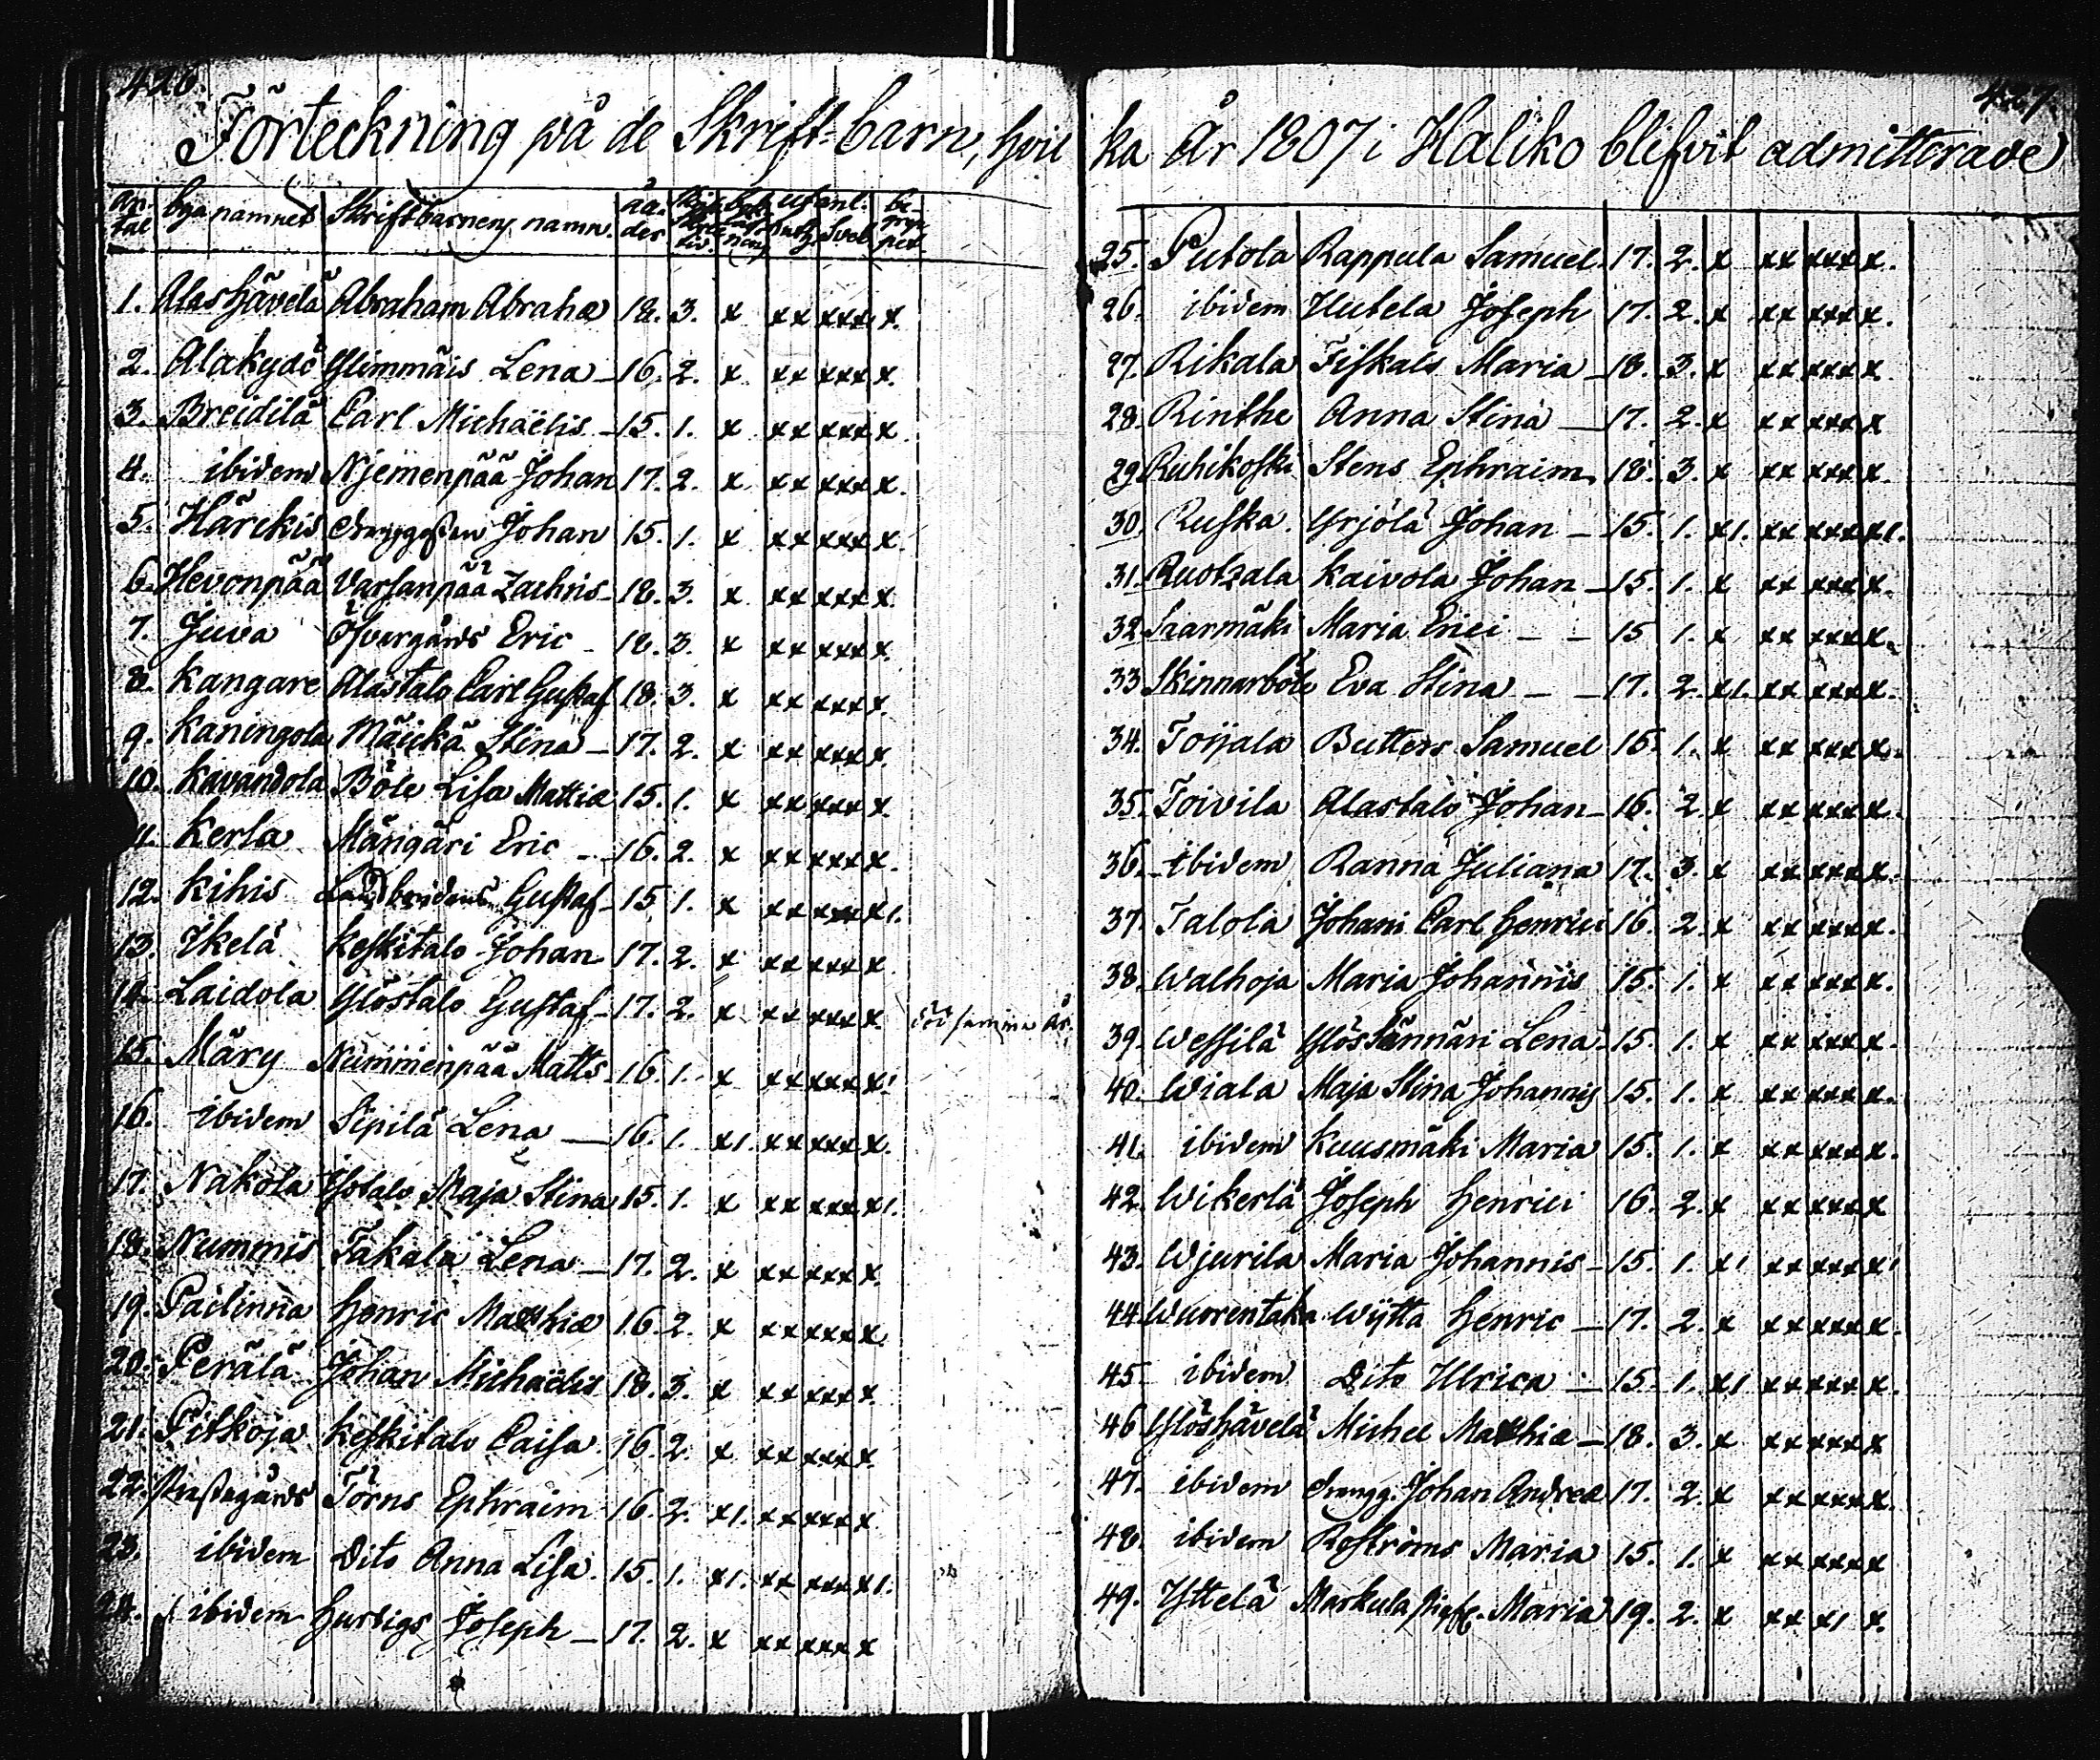 426.
Förteckning på de Skrift-barn, hvil
an-tal byanamnet Skriftbarnens namn. ål-der utanl. be-grep-pet
1. Alashävelä Abraham Abrahæ 18. 3. x xx xxx x.
2. Alakydö Glimmäis Lena 16. 2. x xx xxx x.
3. Breidilä Carl Michaëlis 15. 1. x xx xxx x.
4. ibidem Njemenpää Johan 17. 2. x xx xxx x.
5. Härckis Johan 15. 1. x xx xxx x.
6. Hevonpää Varsanpää Zachris 18. 3. x xx xxx x.
7. Juva Öfvergårds Eric 18. 3. x xx xxx x.
8. Kangare Alastalo Carl Gustaf 18. 3. x xx xxx x.
9. Kaningola Mäickä Stina 17. 2. x xx xxx x.
10. Kavandola Böle Lisa Mattiæ 15. 1. x xx xxx x.
11. Kerla Mängäri Eric 16. 2. x xx xxx x.
12. Kihis Gustaf 15 1. x xx xxx x1.
13. Ikelä Keskitalo Johan 17. 2. x xx xxx x
14. Laidola Ylöstalo Gustaf 17. 2. x xx xxx x. död samma År.
15. Märy Nummenpää Matts 16. 1. x xx xxx x1
16. ibidem Sipilä Lena 16. 1. x1. xx xxx x.
17. Nakola Ylistalo Maja Stina 15. 1. x xx xxx x1.
18. Nummis Takala Lena 17. 2. x xx xxx x.
19. Pailinna Henric Matthiæ 16. 2. x xx xxx x.
20. Perälä Johan Michaëlis 18. 3. x xx xxx x.
21. Pitkoja Keskitalo Caisa 16. 2. x xx xxx x.
22. Prästegårds Törns Ephraim 16. 2. x1. xx xxx x.
23. ibidem Dito Anna Lisa 15. 1. x1. xx xxx x1.
24. ibidem Hurtigs Joseph 17. 2. x xx xxx x
427.
ka År 1807 i Haliko blifvit admitterade
25. Putola Rappula Samuel 17. 2. x xx xxx x.
26. ibidem Uutela Joseph 17. 2. x xx xxx x.
27. Rikala Fiskals Maria 18. 3. x xx xxx x.
28. Rinthe Anna Stina 17. 2. x xx xxx x
29 Ruhikoski Stens Ephraim 18. 3. x xx xxx x.
30. Ruska Yrjölä Johan 15. 1. x1. xx xxx x1.
31. Ruotzala Kaivola Johan 15. 1. x xx xxx x.
32 Saarmäki Maria Erici 15 1. x xx xxx x.
33 Skinnarböle Eva Stina 17. 2. x1. xx xxx x.
34. Toijala Butters Samuel 15. 1. x xx xxx x.
35. Toivila Alastalo Johan 16. 2 x xx xxx x.
36. ibidem Ranna Juliana 17. 3. x xx xxx x.
37 Talola Johani Carl Henrici 16. 2. x xx xxx x.
38. Walhoja Maria Johannis 15. 1. x xx xxx x.
39. Wessilä Ylöstännäri Lena 15. 1. x xx xxx x.
40. Wiala Maja Stina Johannis 15. 1. x xx xxx x.
41. ibidem Kuusmäki Maria 15. 1. x xx xxx x.
42. Wikerlä Joseph Henrici 16. 2. x xx xxx x
43. Wjurila Maria Johannis 15. 1. x1 xx xxx x1
44. Wuorentaka Wytta Henric 17. 2. x xx xxx x.
45. ibidem Dito Ulrica 15. 1. x1 xx xxx x.
46 Ylöshävelä Michel Matthiæ 18. 3. x xx xxx x
47. ibidem Johan Andreæ 17. 2. x xx xxx x.
48. ibidem Roströms Maria 15. 1. x xx xxx x
49. Yttelä Markula Maria 19. 2. x xx x1 x.